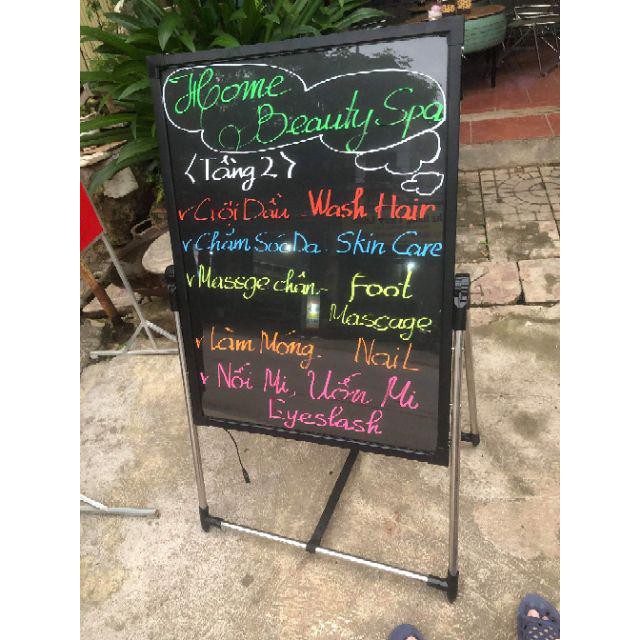 Home
Beauty Spa
<Tầng 2>
v Gội Dầu - Wash Hair
v Chăm Sóc Da - Skin Care
v Massge chân - Foot
Mascage
v Làm Móng - Nail
v Nối Mi, Uốn Mi
Eyeslash